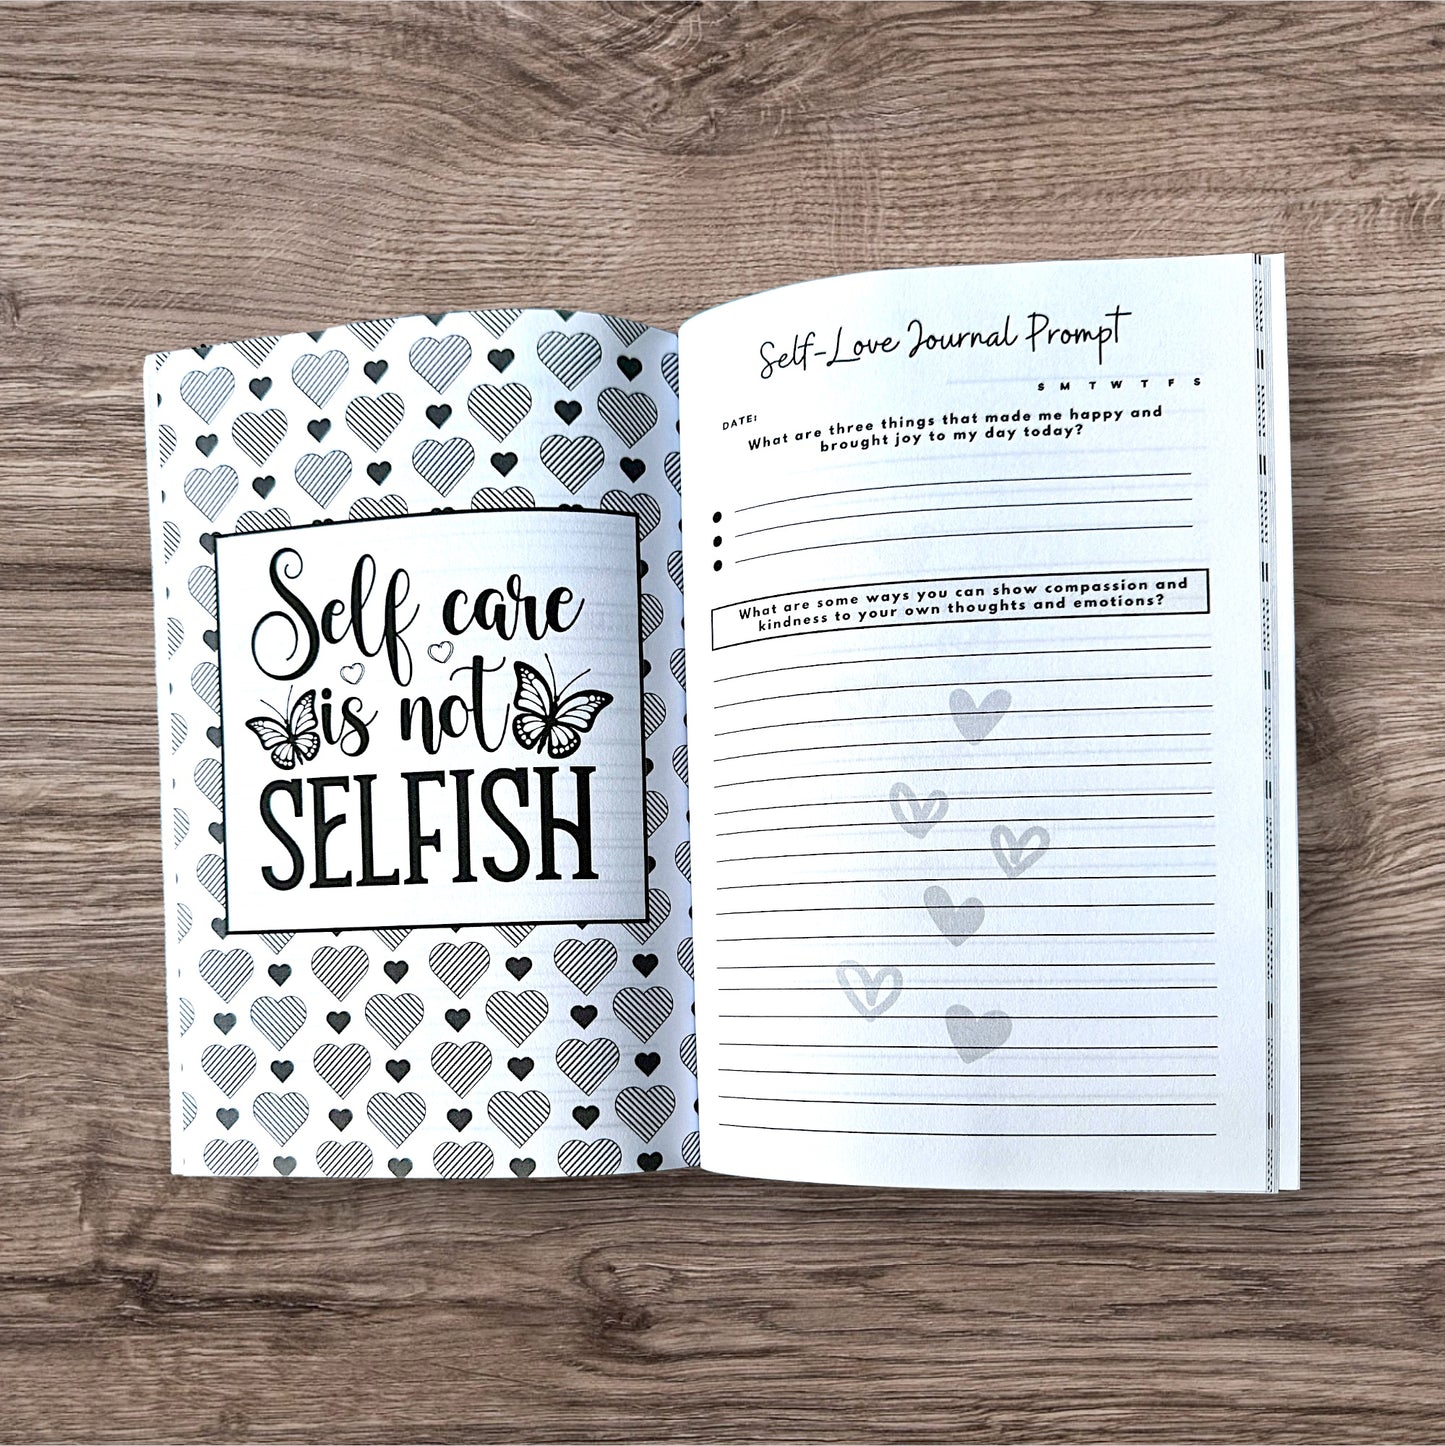 Self care
is not
SELFISH
Self-Love Journal Prompt
S M T W T F S
DATE:
What are three things that made me happy and
brought joy to my day today?
What are some ways you can show compassion and
kindness to your own thoughts and emotions?